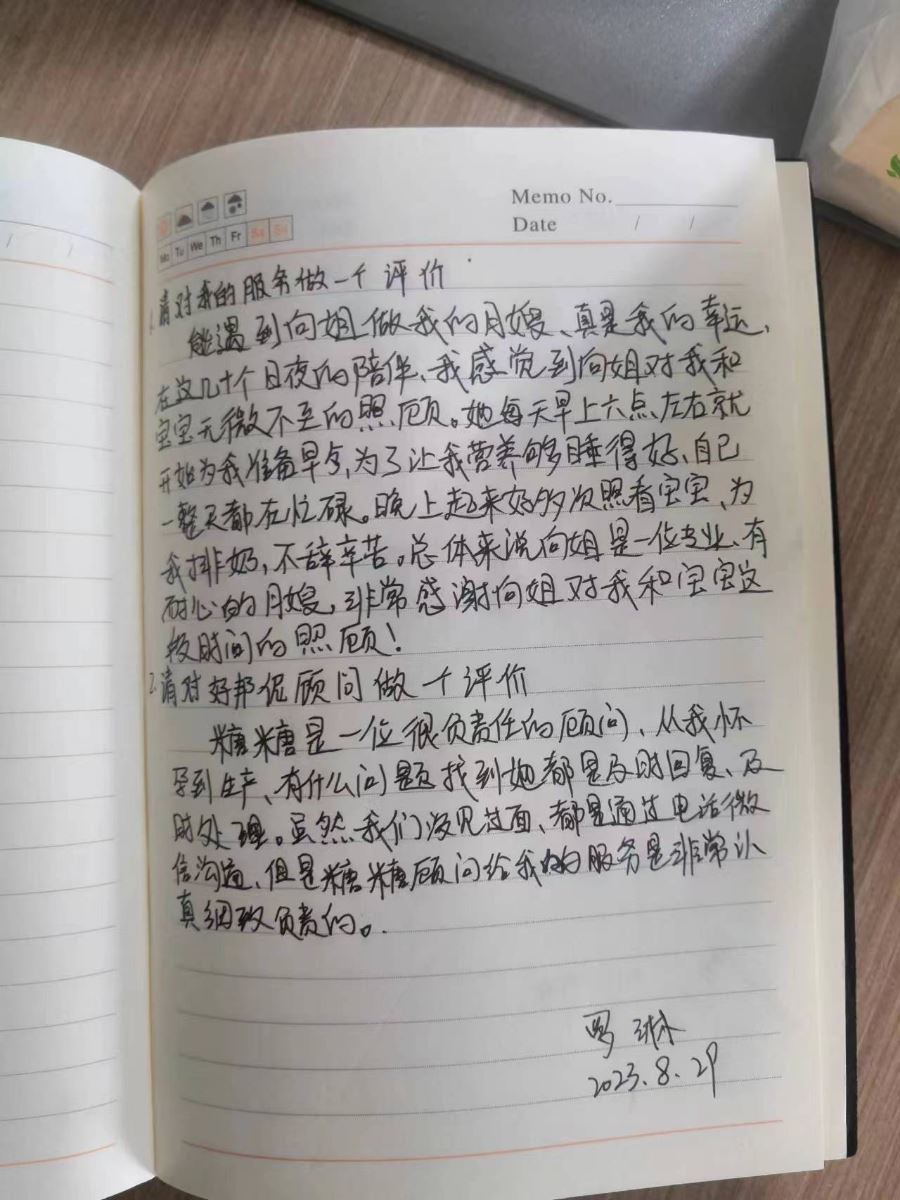 Memo No.
Date / /
Mo Tu We Th Fr Sa Su
1.请对我的服务做一个评价
能遇到向姐做我的月嫂、真是我的幸运,
在这几十个日夜的陪伴、我感觉到向姐对我和
宝宝无微不至的照顾。她每天早上六点左右就
开始为我准备早歺,为了让我营养够睡得好、自己
一整天都在忙碌。晚上起来好多次照看宝宝、为
我排奶,不辞辛苦。总体来说向姐是一位专业、有
耐心的月嫂,非常感谢向姐对我和宝宝这
段时间的照顾!
2.请对好邦伲顾问做一个评价
糖糖是一位很负责任的顾问、从我怀
孕到生产、有什么问题找到她都是及时回复、及
时处理。虽然我们没见过面、都是通过电话微
信沟通、但是糖糖顾问给我的服务是非常认
真细致负责的。
罗琳
2023.8.29